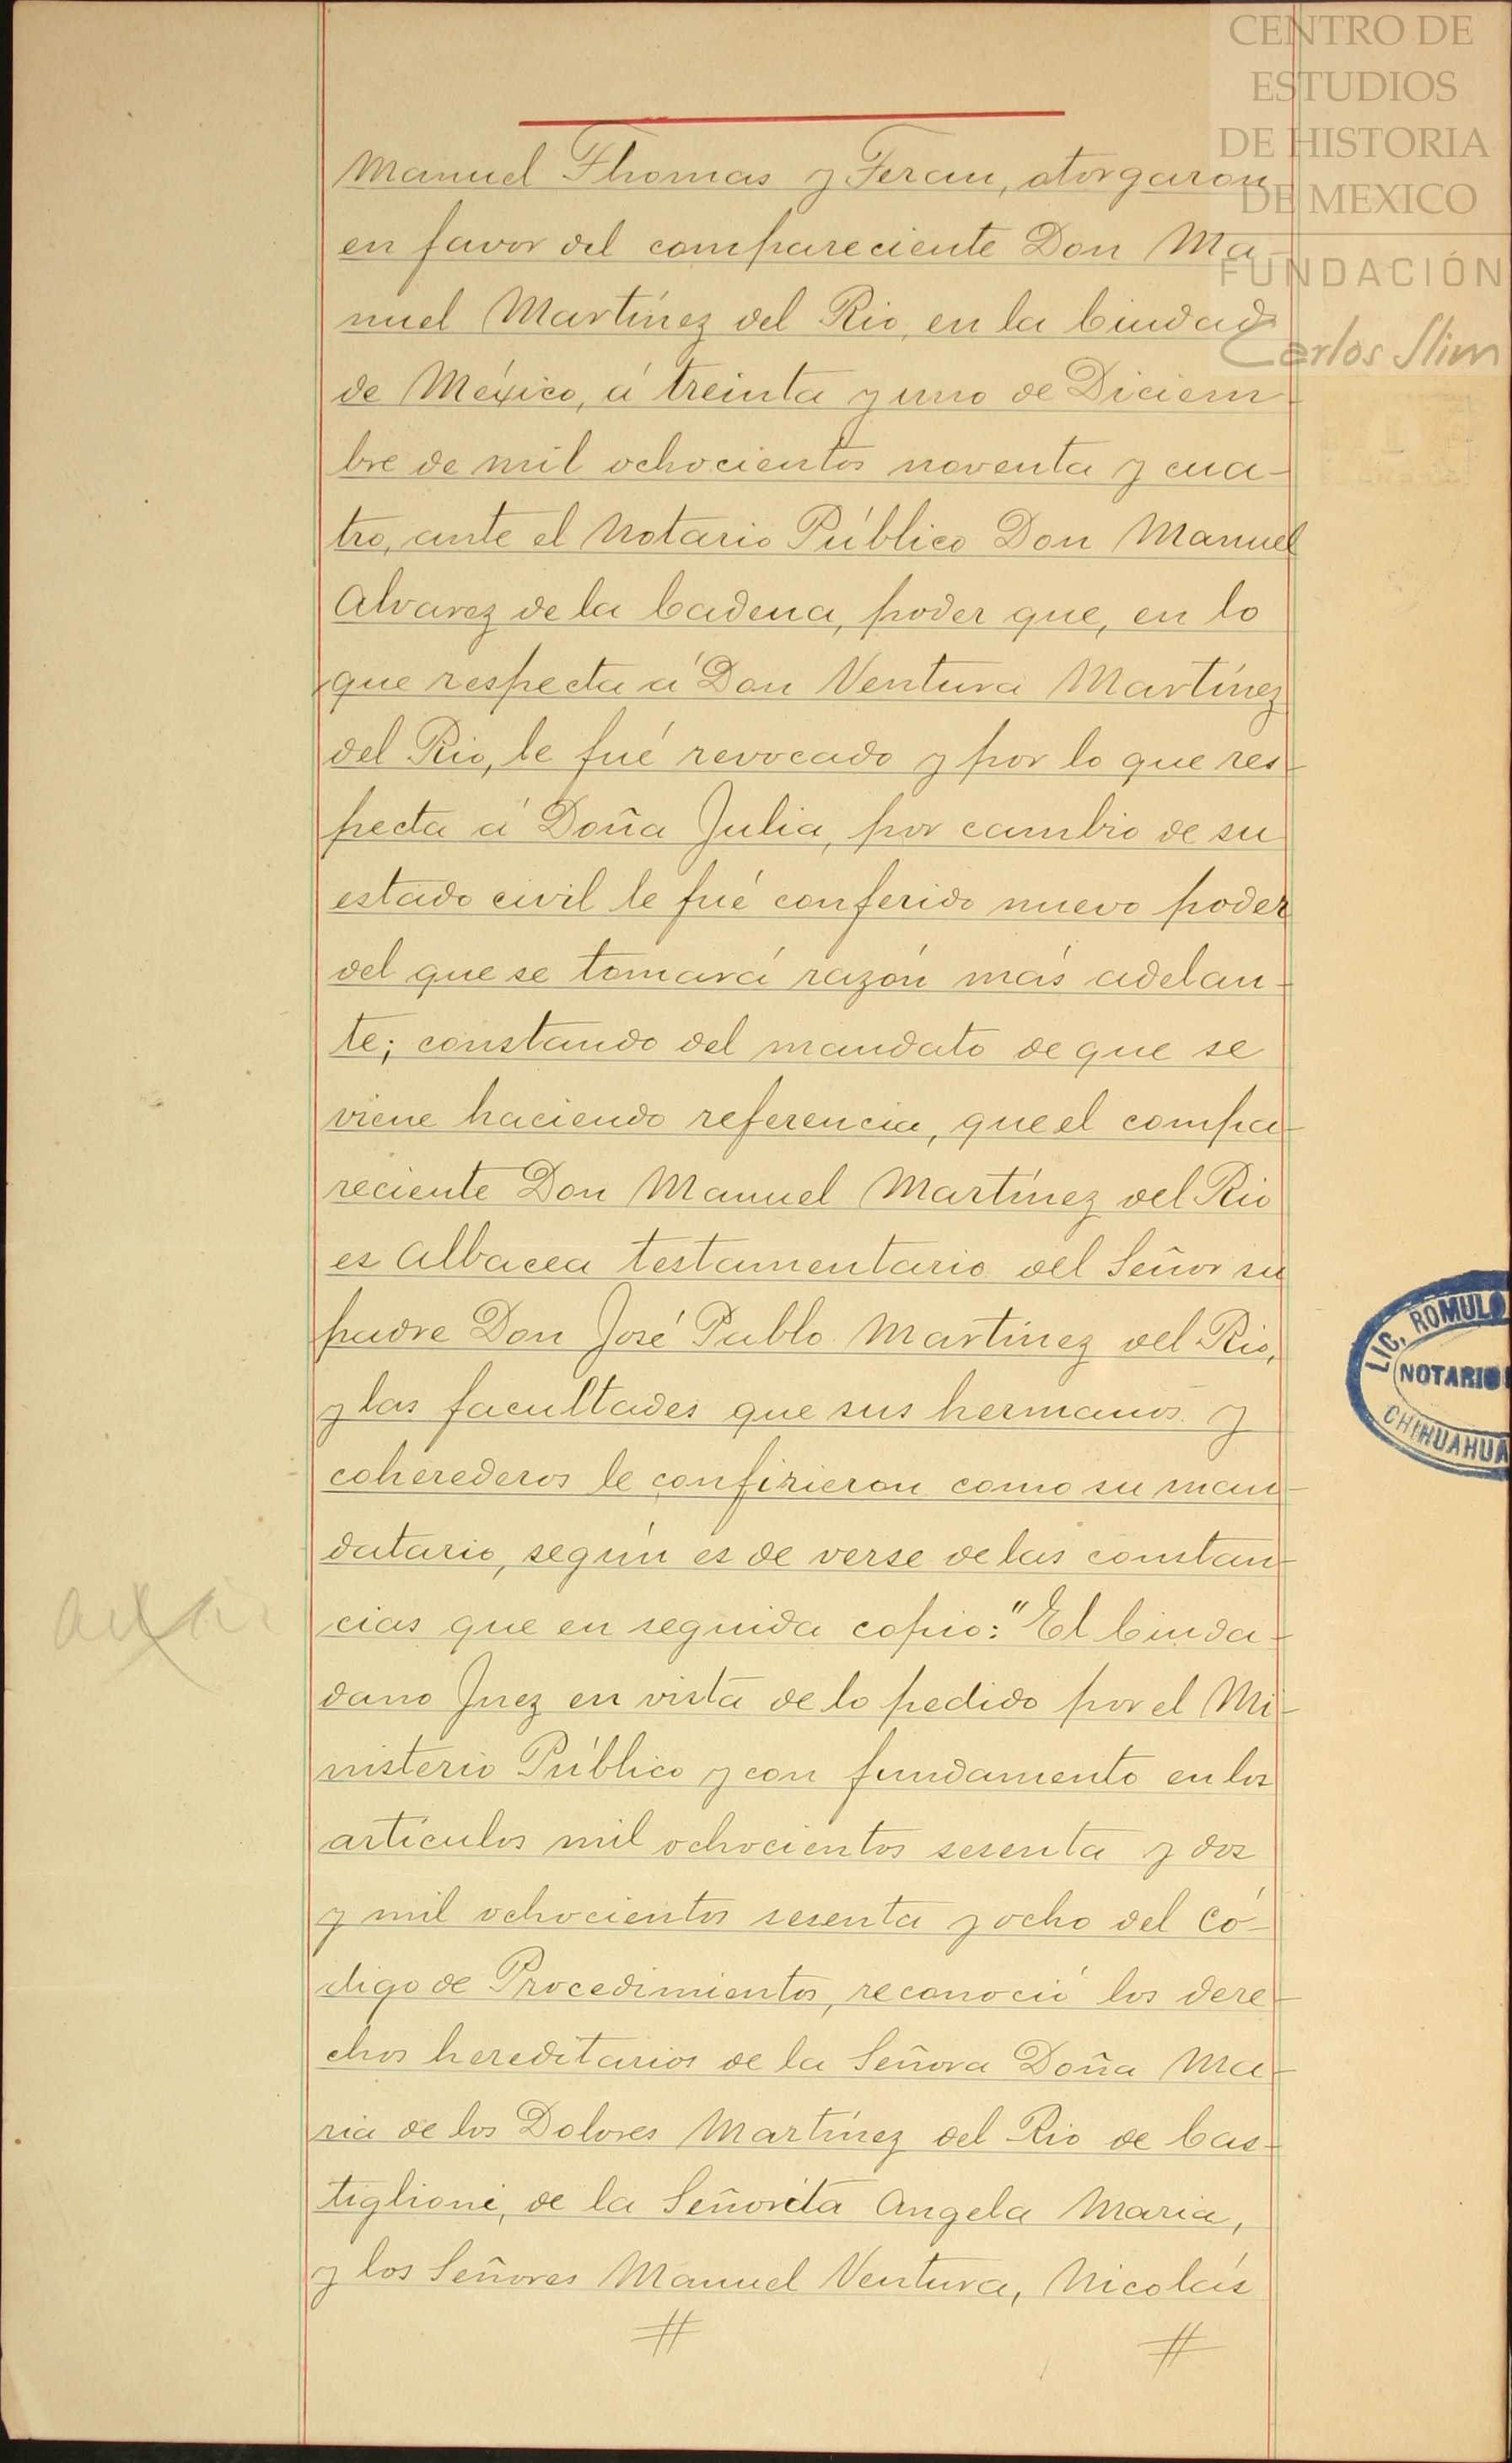 CENTRO DE
ESTUDIOS
DE HISTORIA
DE MEXICO
FUNDACIÓN
Carlos Slim
Manuel Thomas y Teran, otorgaron
en favor del compareciente Don Ma-
nuel Martínez del Rio, en la Ciudad
de México, á treinta y uno de Diciem-
bre de mil ochocientos noventa y cua-
tro, ante el Notario Público Don Manuel
Alvarez de la Cadena, poder que, en lo
que respecta á Don Ventura Martínez
del Rio, le fué revocado y por lo que res-
pecta á Doña Julia, por cambio de su
estado civil le fué conferido nuevo poder
del que se tomará razón más adelan-
te; constando del mandato de que se
viene haciendo referencia, que el compa-
reciente Don Manuel Martínez del Rio
es Albacea testamentario del Señor su
padre Don José Pablo Martínez del Rio,
y las facultades que sus hermanos y
coherederos le confirieron como su man-
datario, según es de verse de las constan-
cias que en seguida copio: "El Ciuda-
dano Juez en vista de lo pedido por el Mi-
nisterio Público y con fundamento en los
artículos mil ochocientos sesenta y dos
y mil ochocientos sesenta y ocho del Có-
digo de Procedimientos, reconoció los dere-
chos hereditarios de la Señora Doña Ma-
ria de los Dolores Martínez del Rio de Cas-
tiglioni, de la Señorita Angela Maria,
y los Señores Manuel Ventura, Nicolás
LIC. ROMULO
NOTARIO
CHIHUAHUA